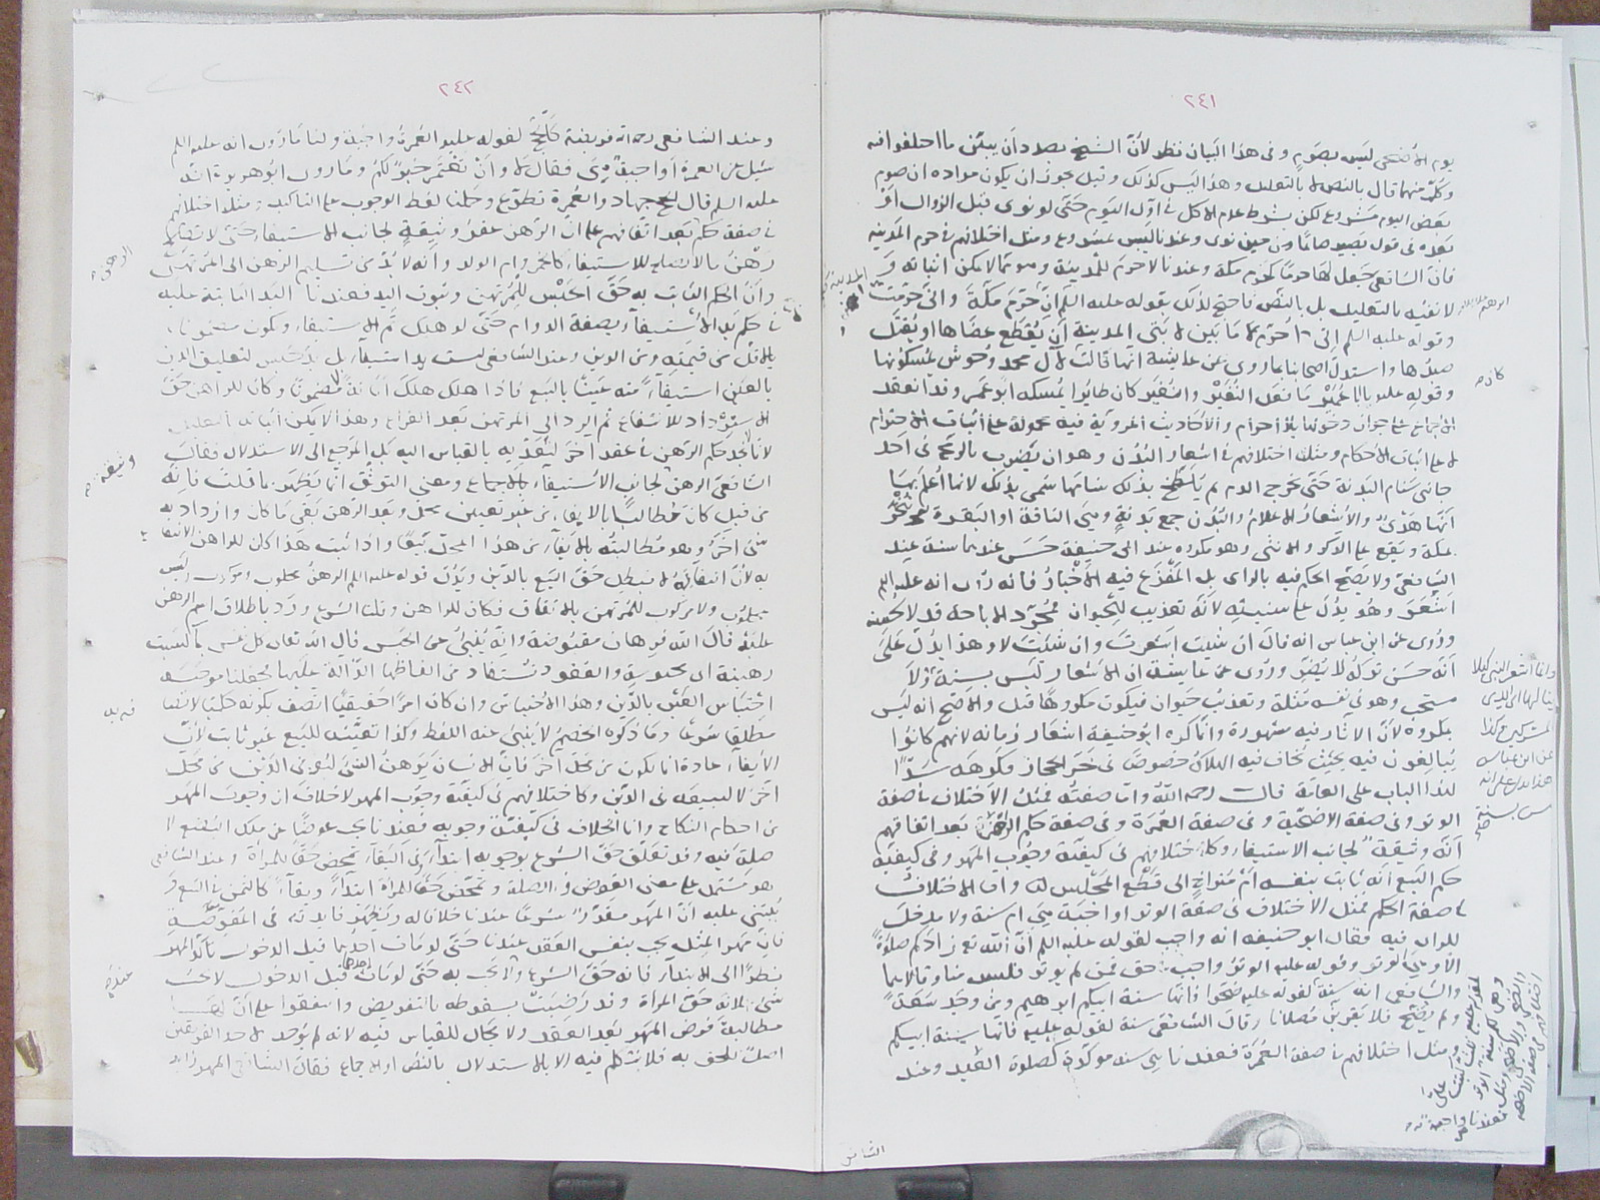 ٢٤١
يوم الأضحى ليس بصوم وفي هذا البيان نظر لأن الشيخ بصدد أن يبين ما اختلفوا فيه
وكل منهما قال بالنص لا بالتعليل وهذا ليس كذلك وقيل يجوز أن يكون مراده أن صوم
بعض اليوم مشروع لكن شرط عدم الأكل في أول اليوم حتى لو نوى قبل الزوال أو
بعده في قول يصير صائما من حين نوى وعندنا ليس بمشروع ومثل اختلافهم في حرم المدينة
فان الشافعي جعل لها حرما كحرم مكة وعندنا لا حرم للمدينة وهو مما لا يمكن اثباته و
لا نفيه بالتعليل بل بالنص فاحتج لذلك بقوله عليه السلم ان ابرهيم حرم مكة واني حرمت المدينة
وقوله عليه السلم اني احرم ما بين لابتي المدينة أن يقطع عضاها او يقتل
صيدها واستدل اصحابنا بما روي عن عايشة انها قالت كان لآل محمد وحوش يمسكونها
وقوله عليه يا با عمير ما فعل النغير والنغير كان طائرا يمسكه ابو عمير وقد انعقد
الإجماع على جواز دخولها بلا احرام والأحاديث المروية فيه محمولة على أثبات الاحترام
لا على اثبات الأحكام ومثل اختلافهم في اشعار البدن وهو ان يضرب بالرمح في احد
جانبي سنام البدنة حتى يخرج الدم ثم يلطخ بذلك سنامها سمي بذلك لأنها اعلم بها
أنها هدي والأشعار الاعلام والبدن جمع بدنة وهي الناقة او البقرة تنحر
بمكة ويقع على الذكر والأنثى وهو مكروه عند ابي حنيفة حسن عندهما سنة عند
الشافعي ولا يصح الحكم فيه بالراي بل المفزع فيه الأخبار فانه روي انه عليه السلم
اشعر وهو يدل على سنيته لأنه تعذيب للحيوان فمجرد الإباحة قد لا تحمله
وروي عن ابن عباس انه قال ان شئت اشعرت وان شئت لا وهذا يدل على
أنه حسن تركه لا يضر وروي عن عايشة ان الاشعار ليس بسنة ولا
مستحب وهو في نفسه مثلة وتعذيب حيوان فيكون مكروها قيل والأصح انه ليس
بمكروه لأن الآثار فيه مشهورة وانما كره ابو حنيفة اشعار زمانه لانهم كانوا
يبالغون فيه بحيث يخاف فيه الهلاك خصوصا في حر الحجاز فكرهه سدا
لهذا الباب على العامة قال رحمه الله وأما صفته فمثل الاختلاف في صفة
الوتر وفي صفة الاضحية وفي صفة العمرة وفي صفة حكم الرهن بعد اتفاقهم
أنه وثيقة لجانب الاستيفاء وكاختلافهم في كيفية وجوب المهر وفي كيفية
حكم البيع أنه ثابت بنفسه أم متراخ إلى قطع المجلس اما الاختلاف
في صفة الحكم فمثل الاختلاف في صفة الوتر اواجبة هي ام سنة ولا مدخل
للراي فيه فقال ابو حنيفة انه واجب لقوله عليه السلم ان الله تع زادكم صلوة
الا وهي الوتر وقوله عليه الوتر واجب حق فمن لم يوتر فليس منا وقالا هما
والشافعي انه سنة لقوله عليه ضحوا فانها سنة ابيكم ابرهيم ومن وجد سعة
ولم يضح فلا يقربن مصلانا وقال الشافعي سنة لقوله عليه فانها سنة ابيكم
ومثل اختلافهم في صفة العمرة فعندنا هي سنة مؤكدة كصلوة العيد وعند
ابرهيم عليه السلام
كان
وانما اشعر النبي كيلا
ينالها ايدي
المشركين كذا
عن ابن عباس
هذا يدل على انه
ليس بسنة
الشافعي
٢٤٢
وعند الشافعي رحمه الله فريضة كالحج لقوله عليه العمرة واجبة ولنا ما روي انه عليه السلم
سئل عن العمرة أواجبة هي فقال لا وان تعتمر خير لكم وما روى ابو هريرة انه
عليه السلم قال الحج جهاد والعمرة تطوع وحملنا لفظ الوجوب على التاكيد ومثل اختلافهم
في صفة حكم الرهن بعد اتفاقهم على ان الرهن عقد وثيقة لجانب الاستيفاء حتى لا يصح
رهن ما لا يصلح للاستيفاء كالخمر وام الولد وانه لا بد من تسليم الرهن الى المرتهن
وان الحكم الثابت به حق الحبس للمرتهن وثبوت اليد فعندنا اليد الثابتة عليه
في حكم يد الاستيفاء بصفة الدوام حتى لو هلك تم الاستيفاء ويكون مضمونا
بالاقل من قيمته ومن الدين وعند الشافعي ليست يد استيفاء بل يد حبس لتعليق الدين
بالعين استيفاء منه عينا بالبيع فاذا هلك هلك أمانة لا مضمونا وكان للراهن حق
الاسترداد للانتفاع ثم الرد الى المرتهن بعد الفراغ وهذا لا يمكن اثباته بالتعليل
لانا لا نجد حكم الرهن في عقد آخر لنعديه بالقياس اليه بل المرجع الى الاستدلال فقال
الشافعي الرهن وثيقة لجانب الاستيفاء بالاجماع ومعنى التوثق انما يظهر بما قلت فانه
من قبل كان مطالبا بالايفاء من غير تعيين محل وبعد الرهن بقي ما كان وازداد به
شئ آخر وهو مطالبته بالايفاء من هذا المحل بيعا واذا ثبت هذا كان للراهن الانتفاع
به لأن انتفاعه لا يبطل حق البيع بالدين ويدل قوله عليه السلم الرهن محلوب ومركوب وليس
بمحلوب ولا مركوب للمرتهن بالاتفاق فكان للراهن وقلنا الشرع ورد باطلاق اسم الرهن
عليه قال الله فرهان مقبوضة وانه ينبئ عن الحبس قال الله تعالى كل نفس بما كسبت
رهينة اي محبوسة والعقود تستفاد من الفاظها الدالة عليها فجعلنا موجبه
احتباس العين بالدين وهذا الاحتباس وان كان امرا حقيقيا اتصف بكونه حكما لانه
مطلق شرعا وما ذكره الخصم لا ينبئ عنه اللفظ وكذا تعينه للبيع غير ثابت لأن
الايفاء عادة انما يكون من محل آخر فان الانسان يرهن الشئ ليوفي الدين من محل
آخر لا لبيعه في الدين وكاختلافهم في كيفية وجوب المهر لا خلاف ان وجوب المهر
من احكام النكاح وانما الخلاف في كيفية وجوبه فعندنا يجب عوضا عن ملك البضع لا
صلة فيه وقد تعلق حق الشرع بوجوبه ابتداء وفي البقاء تمحض حقا للمراة وعند الشافعي
هو مشتمل على معنى العوض والصلة وتمحض حقا للمراة ابتداء وبقاء كالثمن في البيع و
يبتني عليه ان المهر مقدر شرعا عندنا خلافا له ويظهر فايدته في المفوضة
فان مهر المثل يجب بنفس العقد عندنا حتى لو مات احدهما قبل الدخول تأكد المهر
نظرا الى الابتداء فانه حق الشرع ولا يجب به حتى لو مات احدهما قبل الدخول لا يجب
شئ لانه حق المراة وقد رضيت بسقوطه بالتفويض واتفقوا على أن لها
مطالبة فرض المهر بعد العقد ولا مجال للقياس فيه لانه لم يوجد لاحد الفريقين
اصل يلحق به فلا يتكلم فيه الا بالاستدلال بالنص او الاجماع فقال الشافعي المهر زائد
الرهن
وثيقة
فيه
عنده